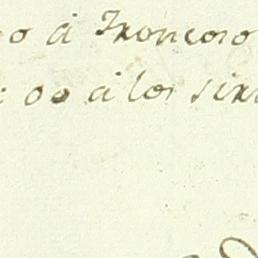 o á Troncoso
oo á los sir